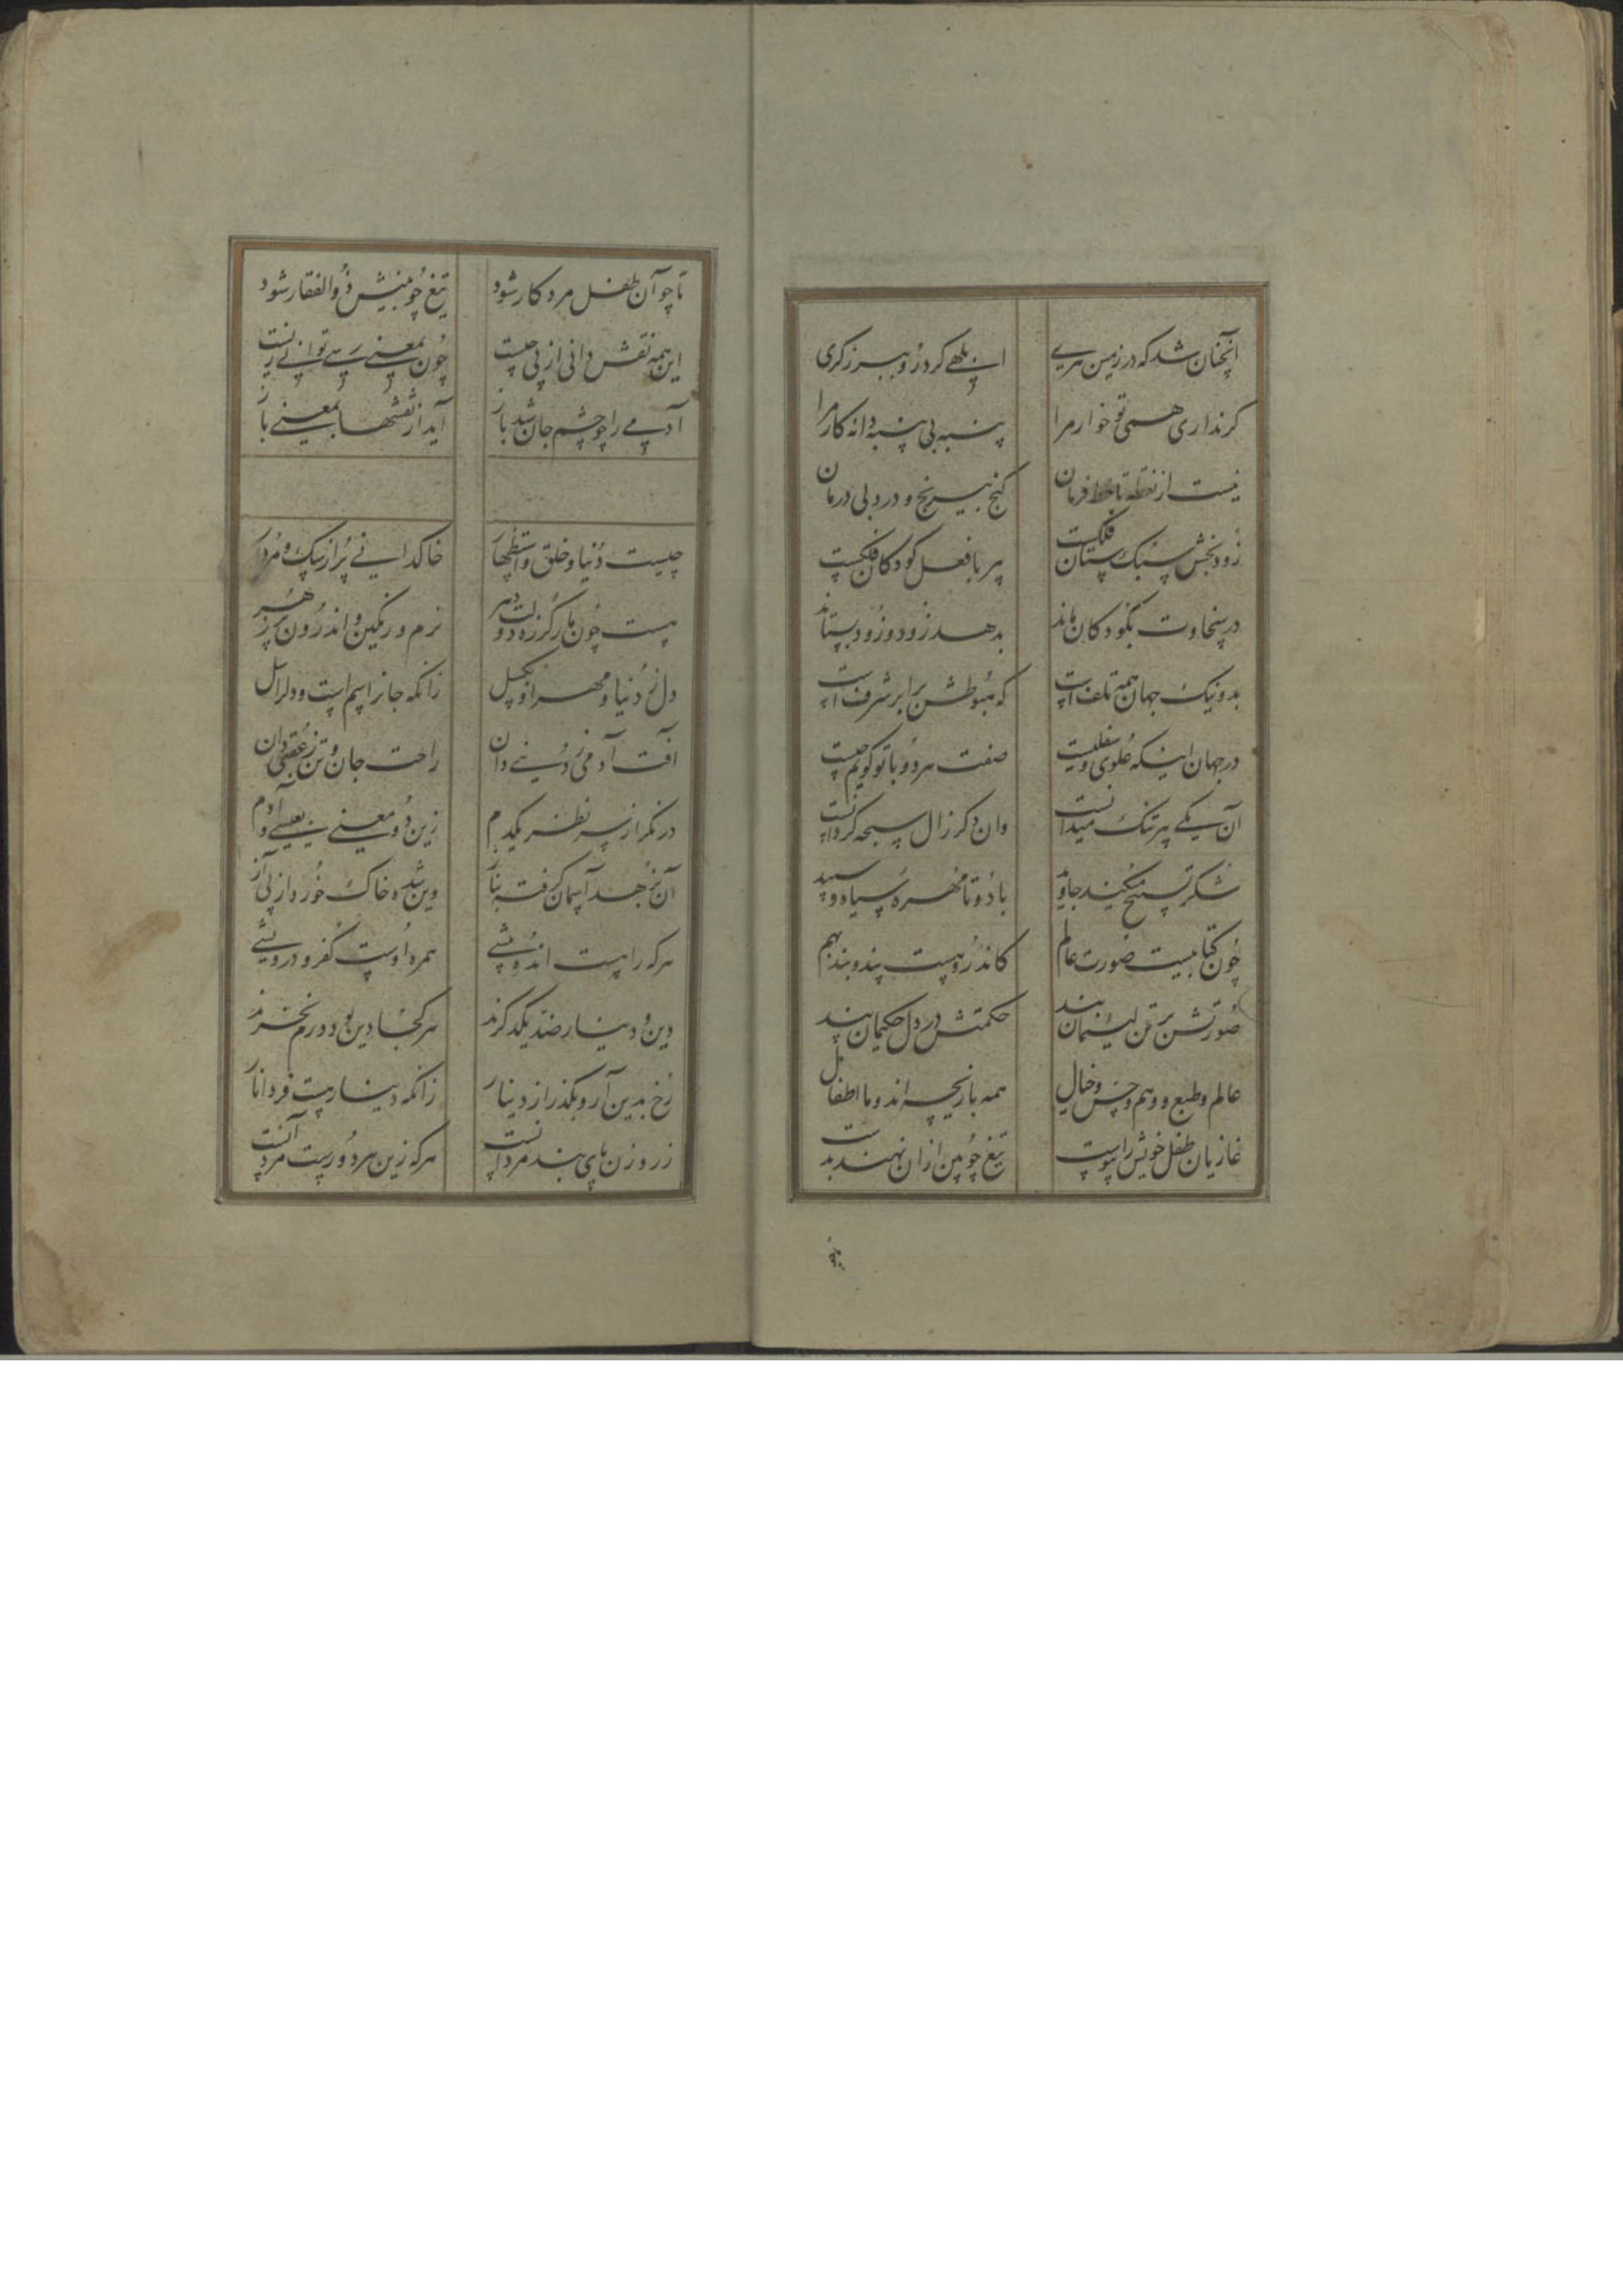 آنچنان شد که در زمین هری
ابلهی کرد رو ببرزگری
گر نداری همی تو خوار مرا
پنبه بی پنبه دانه کار مرا
نیست از نقطه تا خط فرمان
گنج بیرنج و درد بی درمان
زود بخش سبک ستان فلکست
پیر با فعل کودکان فلکست
در سخاوت بکودکان ماند
بدهد زود و زود بستاند
بد و نیک جهان همه تلف است
که هبوطش برابر شرف است
در جهان اینکه علوی و سفلیست
صفت هر دو با تو گویم چیست
آن یکی پیر تنک میدانست
وان دگر زال سبحه گردانست
با دو تا مهره سیاه و سپید
چون کتابیست صورت عالم
کاندرو هست پند و بند بهم
صورتش بر تن لئیمان بند
حکمتش در دل حکیمان پند
عالم و طبع و وهم و حس و خیال
همه بازیچه اند و ما اطفال
غازیان طفل خویش را پیوست
تیغ چوبین ازان نهند بدست
تا چو آن طفل مرد کار شود
تیغ چوبینش ذوالفقار شود
این همه نقش دانی از پی چیست
چون بمعنی رسی توانی زیست
آدمی را چو چشم جان شد باز
آید از نقشها بمعنی باز
چیست دنیا و خلق و استظهار
خاکدانی پر از سگ و مردار
هست چون مار گرزه دولت دهر
نرم و رنگین و اندرون پر زهر
دل ز دنیا و مهر او بگسل
زانکه جانرا سم است و دل را سل
آفت آدمی ز دنیی دان
راحت جان و تن ز عقبی دان
در نگر از سر نظر یکدم
زین دو معنی بعیسی و آدم
آن بزهد آسمان گرفته بناز
وین شده خاک خوردار پی آز
هر که را هست اندُه بیشی
همره اوست کفر و درویشی
دین و دینار ضد یکدگرند
هر کجا دین بود درم نخرند
رخ بدین آر و بگذر از دینار
زانکه دینار هست فردا نار
زر و زن پای بند مردانست
هر که زین هر دو رست مرد آنست